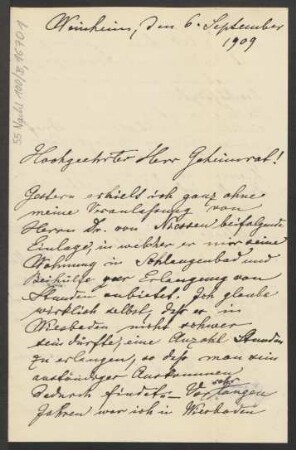 Weinheim, den 6. September
1909
SS Nachl 100/B, 16701
Hochgeehrter Herr Geheimrat!
Gestern erhielt ich ganz ohne
meine Veranlassung von
Herrn Dr. von Niessen beifolgende
Einlage, in welcher er mir seine
Wohnung in Schlangenbad und
Beihülfe zur Erlangung von
Stunden anbietet. Ich glaube
wirklich selbst, daß es in
Wiesbaden nicht schwer
sein dürfte, eine Anzahl Stunden
zu erlangen, so daß man sein
anständiges Auskommen
dadurch findet. – Vor sehr langen
Jahren war ich in Wiesbaden